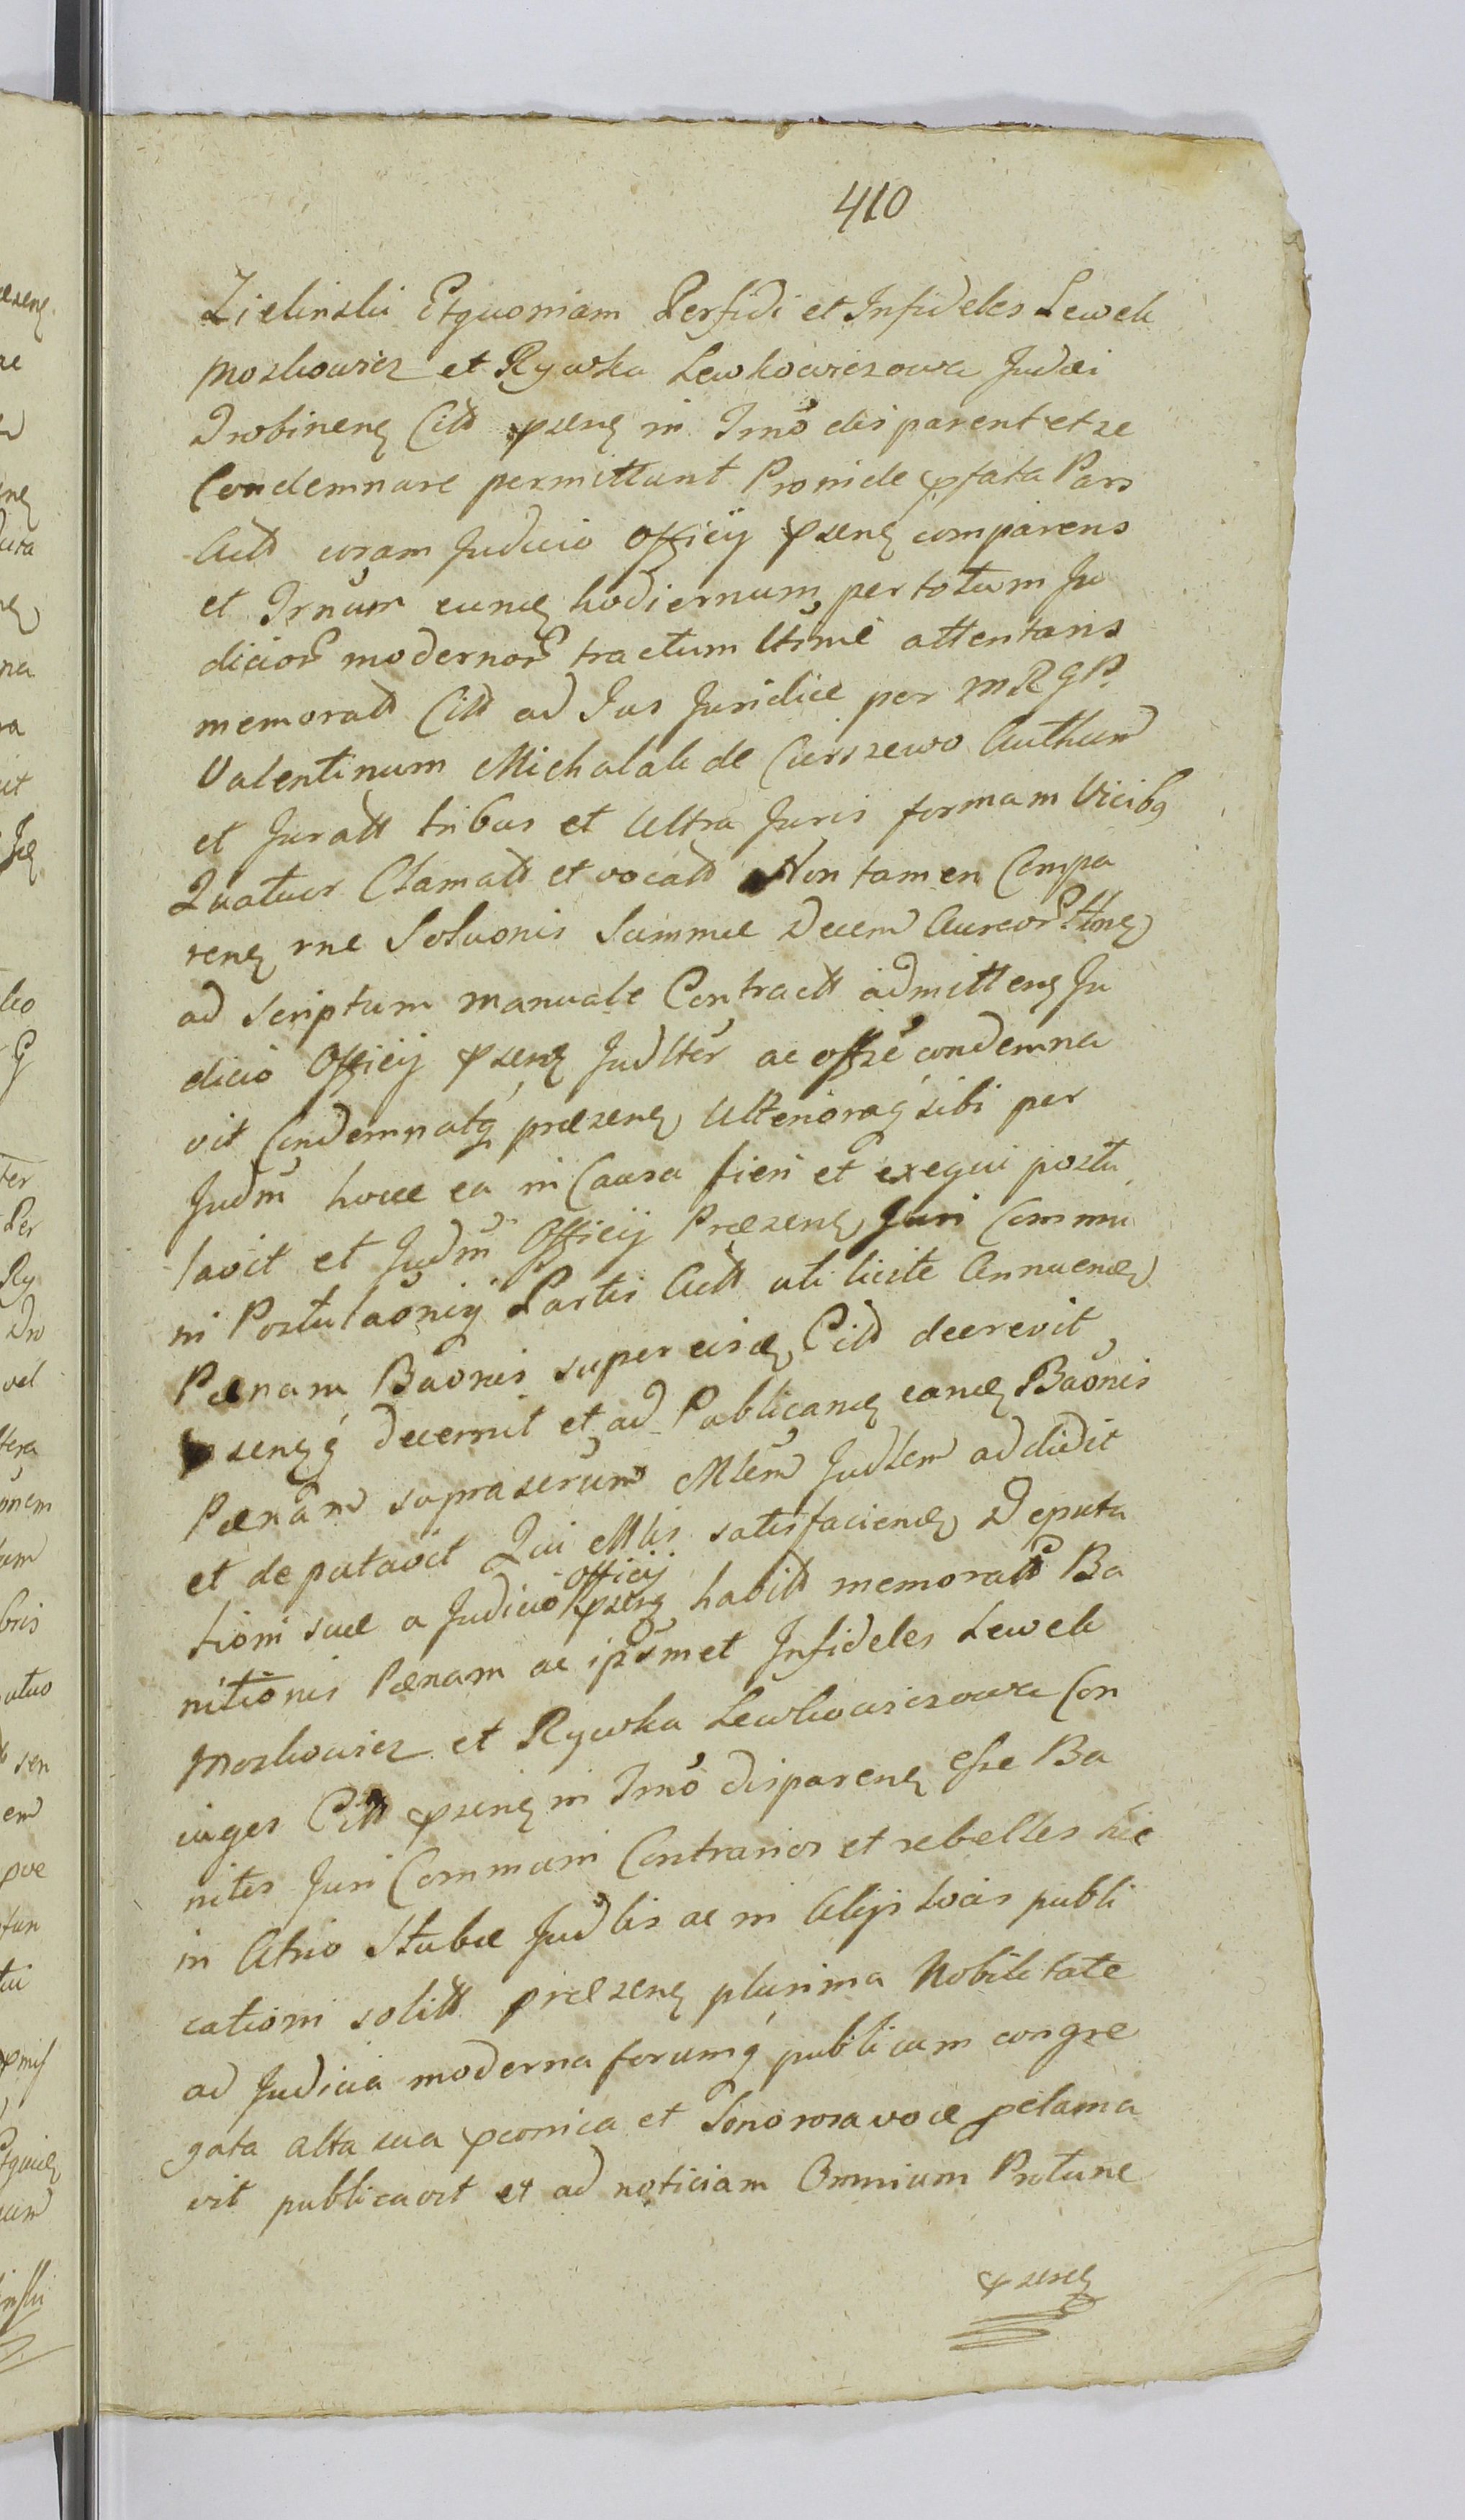 410
Zielinski Etquoniam Perfidi et Infideles Lewek
Moszkowicz et Rywka Lewkowiczowa Judæi
Drobinens Citt pzens in Trno disparent et se
Condemnare permittunt Proinde pfata Pars
Actt coram Judicio Officij pzens comparens
et Trnum eund hodiernum per totum Ju
dicior modernor tractum ltime attentans
memoratt Citt ad Jus Juridice per MRGP.
Valentinum Michalak de Authum
et Juratt tribus et Ultra Juris formam Vicibq
Quatuor Clamatt et vocatt Non tamen Compa
rens rne Soluonis Summæ Decem Aureor
ad scriptum manuale Contractt admittens Ju
dicio Officij pzens Judlter ac offse condemna
vit Condemnatq præzens Ulterioraq sibi per
Judm hocce ea in Causa fieri et exequi postu
lavit et Judm Officij Præzens Juri Commu
ni Postulaoniq Partis Actt uti licite Annuend
Pænam Baonis super eisd Citt decrevit
pzensq decernit et ad Publicand eand Baonis
Pænam suprascrium Mlem Judlem addidit
et deputavit Qui Mlis satisfaciend Deputa
tioni suæ a Judicio Officij pzens habitt memoratt Ba
nitionis Pænam ac ipsmet Infideles Lewek
Moszkowicz et Rywka Lewkowiczowa Con
iuges Citt pzens in Trno disparens esse Ba
nitos Juri Communi Contrarios et rebelles hic
in Atrio Stubæ Judlis ac in Alijs Locis publi
cationi solitt præzens plurima Nobilitate
ad Judicia moderna forumq publicum congre
gata alta sua pconica et Sonorosa voce pclama
vit publicavit et ad noticiam Omnium Protunc
pzens